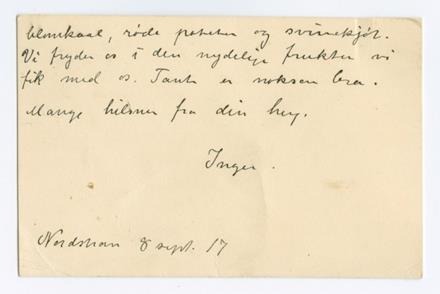 blomkaal, røde poteter og svinekjøt.
Vi fryder os i den nydelige frukten vi
fik med os. Tante er noksaa bra.
Mange hilsner fra din heng.
Inger.
Nordstran 8 sept. 17